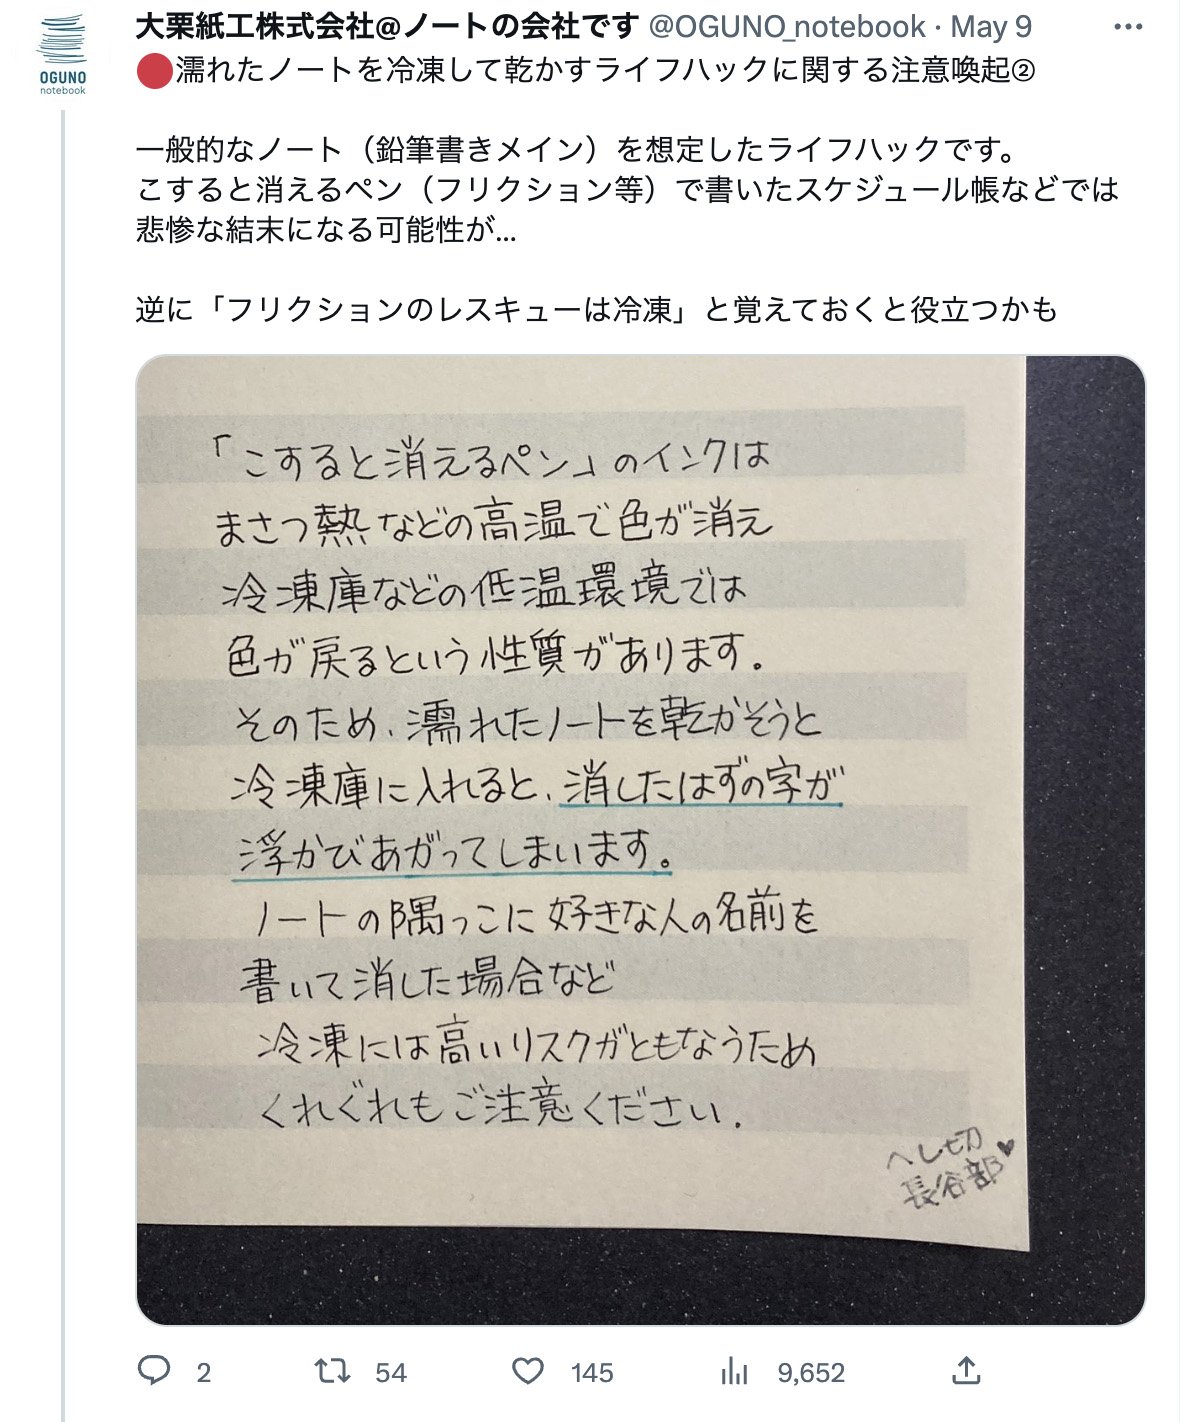 大栗紙工株式会社@ノートの会社です @OGUNO_notebook · May 9
OGUNO
notebook
🔴濡れたノートを冷凍して乾かすライフハックに関する注意喚起②
一般的なノート（鉛筆書きメイン）を想定したライフハックです。
こすると消えるペン（フリクション等）で書いたスケジュール帳などでは
悲惨な結末になる可能性が...
逆に「フリクションのレスキューは冷凍」と覚えておくと役立つかも
「こすると消えるペン」のインクは
まさつ熱などの高温で色が消え
冷凍庫などの低温環境では
色が戻るという性質があります。
そのため、濡れたノートを乾かそうと
冷凍庫に入れると、消したはずの字が
浮かびあがってしまいます。
ノートの隅っこに好きな人の名前を
書いて消した場合など
冷凍には高いリスクがともなうため
くれぐれもご注意ください.
へし切
長谷部♥
2 54 145 9,652